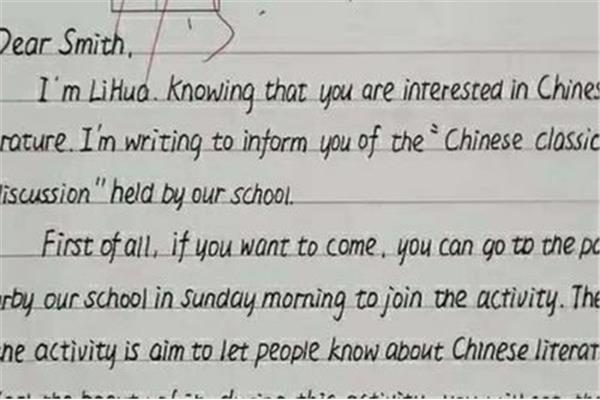 Dear Smith,
I'm LiHua. Knowing that you are interested in Chines
rature. I'm writing to inform you of the "Chinese classic
iscussion" held by our school.
First of all, if you want to come, you can go to the pa
rby our school in Sunday morning to join the activity. The
he activity is aim to let people know about Chinese literat